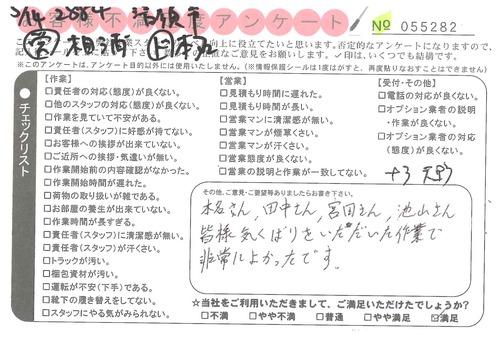 5/14 2884 
お客様不満足度アンケート
№ 055282
向上に役立てたいと思います。否定的なアンケートになりますので、
ご意見をお願いします。✓印は、いくつでも結構です。
※このアンケートは、アンケート目的以外には使用いたしません。(※情報保護シールは1度はがすと、再度貼りなおすことはできません)
チェックリスト
【作業】
□責任者の対応(態度)が良くない。
□他のスタッフの対応(態度)が良くない。
□作業を見ていて不安がある。
□責任者(スタッフ)に好感が持てない。
□お客様への挨拶が出来ていない。
□ご近所への挨拶・気遣いが無い。
□作業開始前の内容確認がなかった。
□作業開始時間が遅れた。
□荷物の取り扱いが雑である。
□お部屋の養生が出来ていない。
□作業時間が長すぎる。
□責任者(スタッフ)に清潔感が無い。
□責任者(スタッフ)が汗くさい。
□トラックが汚い。
□梱包資材が汚い。
□運転が不安(下手)である。
□靴下の履き替えをしてない。
□スタッフにやる気がみられない。
【営業】
□見積もり時間に遅れた。
□見積もり時間が長い。
□営業マンに清潔感が無い。
□営業マンが煙草くさい。
□営業マンが汗くさい。
□営業態度が良くない。
□営業の説明と作業が一致してない。
【受付・その他】
□電話の対応が良くない。
□オプション業者の説明
・作業が良くない。
□オプション業者の対応
(態度)が良くない。
その他、ご意見・ご要望等ありましたらお書き下さい。
木名さん,田中さん,宮田さん,池山さん
皆様気くばりをいただいた作業で
非常によかったです。
☆当社をご利用いただきまして、ご満足いただけたでしょうか?
□不満 □やや不満 □普通 □やや満足 ☑満足